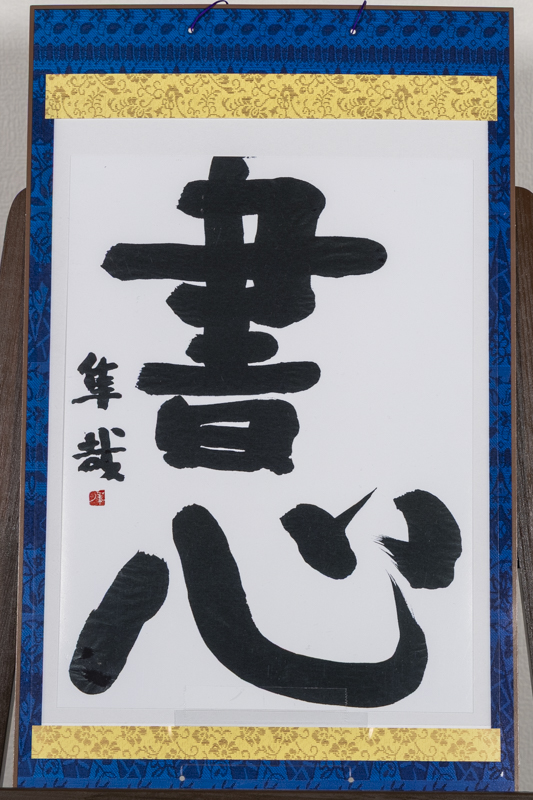 書心
隼哉